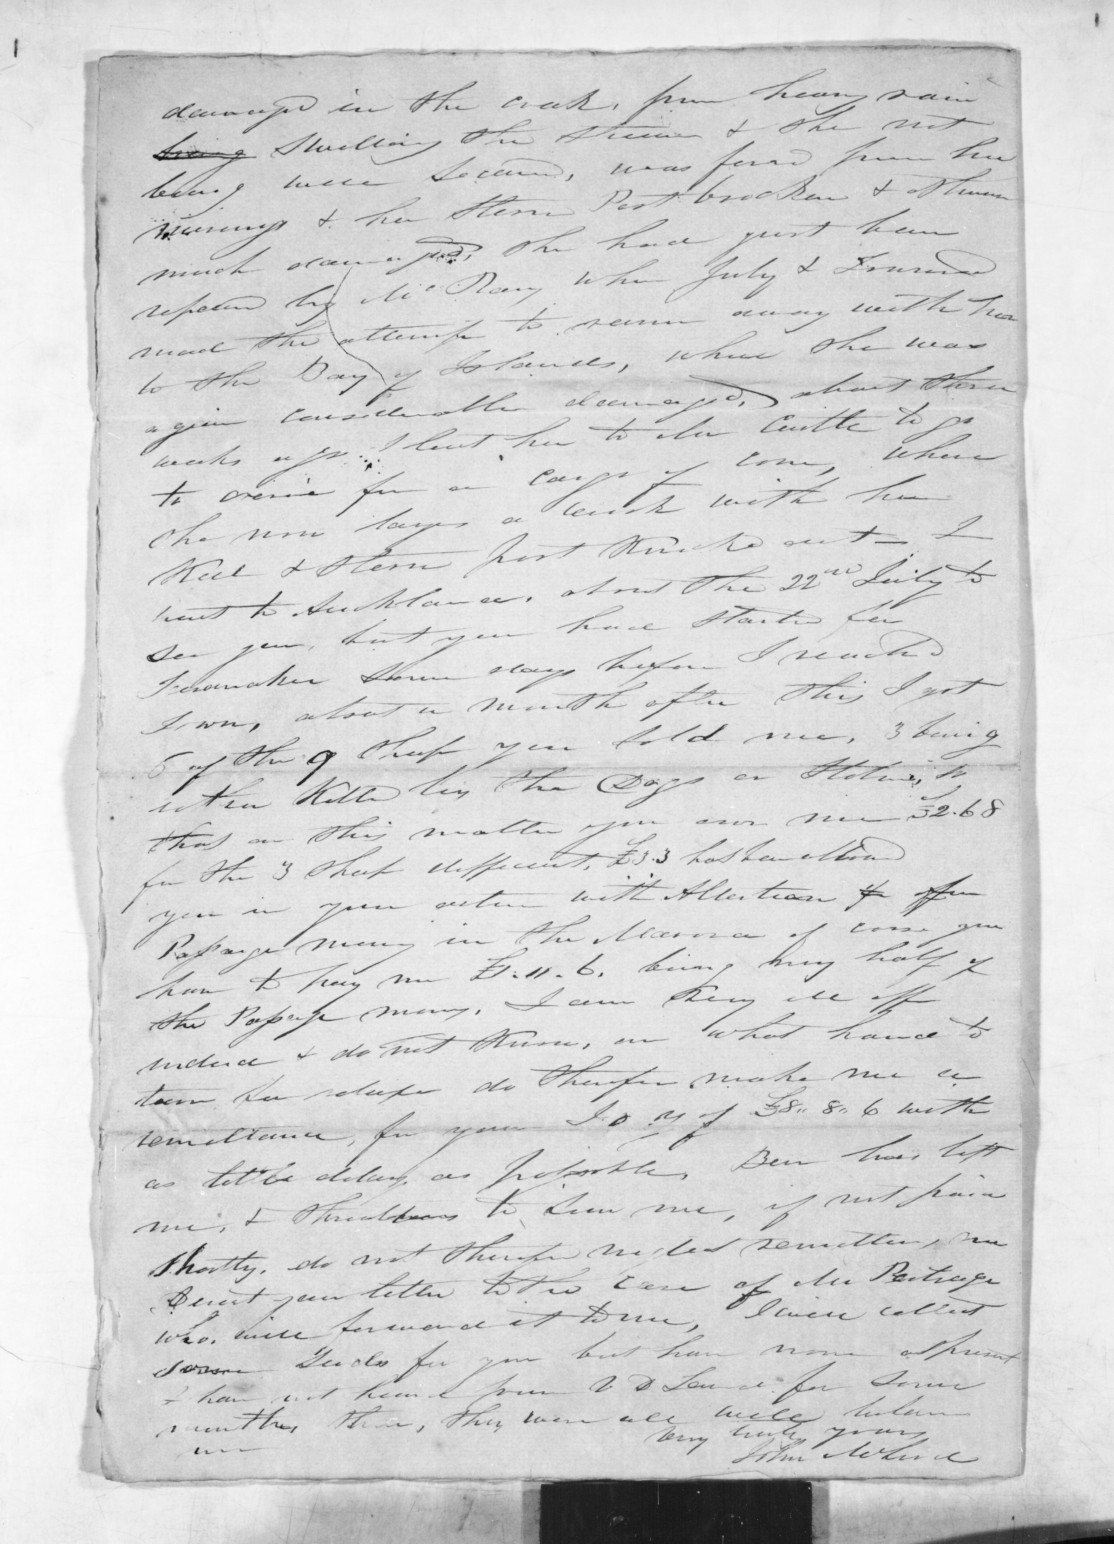 damaged in the creek, from heavy rain
being swelling the stream & she not
being well secured, was forced from her
moorings & her stern Post brocken & otherwise
much damaged, she had just been
repaired by Mr Ray when July &
made the attempt to runn away with her
to the Bay of Islands, where she was
again considerable damaged, about three
weeks ago I lent her to Mr to go
to for a cargo of corn, where
she now layes a wreck with her
Keel & Stern post Knocked out — I
went to Auckland about the 22nd July to
see you, but you had started for
Taranaker some days before I reached
Town, about a month after this I got
6 of the 9 sheep you sold me, 3 being
either Killed by the Dogs or Stolen, so
that on this matter you owe me £32.68
for the 3 sheep defficient, £3.3 has been allowed
you in your return with for
Passage money in the of corse you
have to pay me £1.11.6. being my half of
the Passage money. I am very ill off
indeed & do not Know, on what hand to
turn for releafe do therefor make me a
remittance, for your I O Y of £38.. 8.. 6 with
as little delay as possoble, Ben has left
me, & threattens to Sue me, if not paid
shortly. do not therefor neglect remitting me
Direct your letter to the Care of Mr Partrage
who will forward it to me, I will collect
some Seeds for you but have none at present
I have not heard from V D Land for some
months, then, they were all well
very truly yours
John